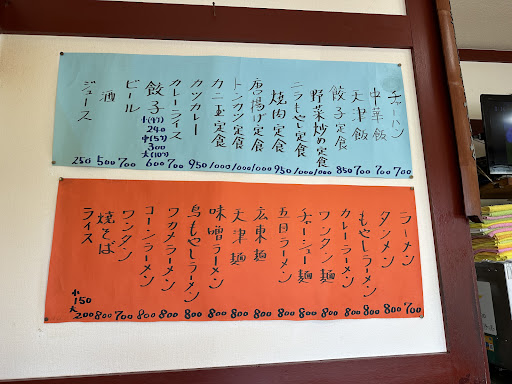 チャーハン 700
中華飯 700
天津飯 700
餃子定食 850
野菜炒め定食 1000
ニラもやし定食 1000
焼肉定食 950
唐揚げ定食 1000
トンカツ定食 1000
カニ玉定食 1000
カツカレー 950
カレーライス 700
餃子 小(4ツ) 240 中(5ツ) 300 大(10ケ) 600
ビール 700
酒 500
ジュース 250
ラーメン 700
タンメン 800
もやしラーメン 800
カレーラーメン 800
ワンタン麺 800
チャーシュー麺 800
五目ラーメン 800
広東麺 800
天津麺 800
味噌ラーメン 800
鳥もやしラーメン 800
ワカメラーメン 800
コーンラーメン 800
ワンタン 700
焼そば 800
ライス 小 150 大 200